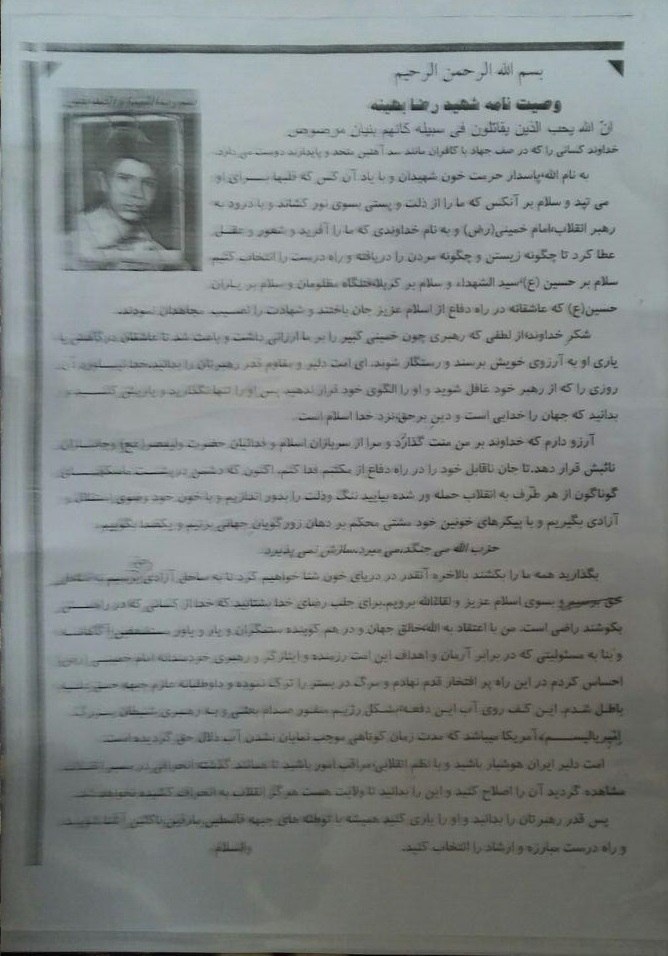 بسم الله الرحمن الرحیم
وصیت نامه شهید رضا بهینه
انّ الله یحب الذین یقاتلون فی سبیله کانهم بنیان مرصوص
خداوند کسانی را که در صف جهاد با کافران مانند سد آهنین متحد و پایدارند دوست می دارد.
به نام الله پاسدار حرمت خون شهیدان و با یاد آن کس که قلبها برای او
می تپد و سلام بر آنکس که ما را از ذلت و پستی بسوی نور کشاند و با درود به
رهبر انقلاب امام خمینی(رض) و به نام خداوندی که ما را آفرید و شعور و عقل
عطا کرد تا چگونه زیستن و چگونه مردن را دریافته و راه درست را انتخاب کنیم
سلام بر حسین (ع) سید الشهداء و سلام بر کربلا قتلگاه مظلومان و سلام بر یاران
حسین(ع) که عاشقانه در راه دفاع از اسلام عزیز جان باختند و شهادت را نصیب مجاهدان نمودند.
شکر خداوند از لطفی که رهبری چون خمینی کبیر را بر ما ارزانی داشت و باعث شد تا عاشقان در کاهش با
یاری او به آرزوی خویش برسند و رستگار شوند. ای امت دلیر و مقاوم قدر رهبرتان را بدانید، خدا نیاورد آن
روزی را که از رهبر خود غافل شوید و او را الگوی خود قرار ندهید پس او را تنها نگذارید و یاریش کنید و
بدانید که جهان را خدایی است و دین بر حق نزد خدا اسلام است.
آرزو دارم که خداوند بر من منت گذارد و مرا از سربازان اسلام و فدائیان حضرت ولیعصر(عج) و
نائبش قرار دهد. تا جان ناقابل خود را در راه دفاع از مکتبم فدا کنم. اکنون که دشمن در پشت ماسکهای
گوناگون از هر طرف به انقلاب حمله ور شده بیایید ننگ وذلت را بدور اندازیم و با خون خود وضوی استقلال و
آزادی بگیریم و با پیکرهای خونین خود مشتی محکم بر دهان زورگویان جهانی بزنیم و یکصدا بگوییم
حزب الله می جنگد، می میرد، سازش نمی پذیرد.
بگذارید همه ما را بکشند بالاخره آنقدر در دریای خون شنا خواهیم کرد تا به ساحل آزادی برسیم
حق برسیم و بسوی اسلام عزیز و لقاءالله برویم. برای جلب رضای خدا بشتابید که خدا از کسانی که در راهش
بکوشند راضی است. من با اعتقاد به الله خالق جهان و در هم کوبنده ستمگران و یار و یاور مستضعفین
و بنا به مسئولیتی که در برابر آرمان و اهداف این امت رزمنده و ایثارگر و رهبری خردمندانه امام خمینی (رض)
احساس کردم در این راه پر افتخار قدم نهادم و مرگ در بستر را ترک نموده و داوطلبانه عازم جبهه حق علیه
باطل شدم. این کف روی آب این دفعه بشکل رژیم منفور صدام بعثی و به رهبری شیطان بزرگ
امپریالیسم آمریکا میباشد که مدت زمان کوتاهی موجب نمایان نشدن آب زلال حق گردیده است.
امت دلیر ایران هوشیار باشید و با نظم انقلابی مراقب امور باشید تا همانند گذشته انحرافی در مسیر انقلاب
مشاهده گردید آن را اصلاح کنید و این را بدانید تا ولایت هست هرگز انقلاب به انحراف کشیده نخواهد شد.
پس قدر رهبرتان را بدانید و او را یاری کنید همیشه با توطئه های جبهه قاسطین مارقین ناکثین آشنا شوید
و راه درست مبارزه و ارشاد را انتخاب کنید. والسلام